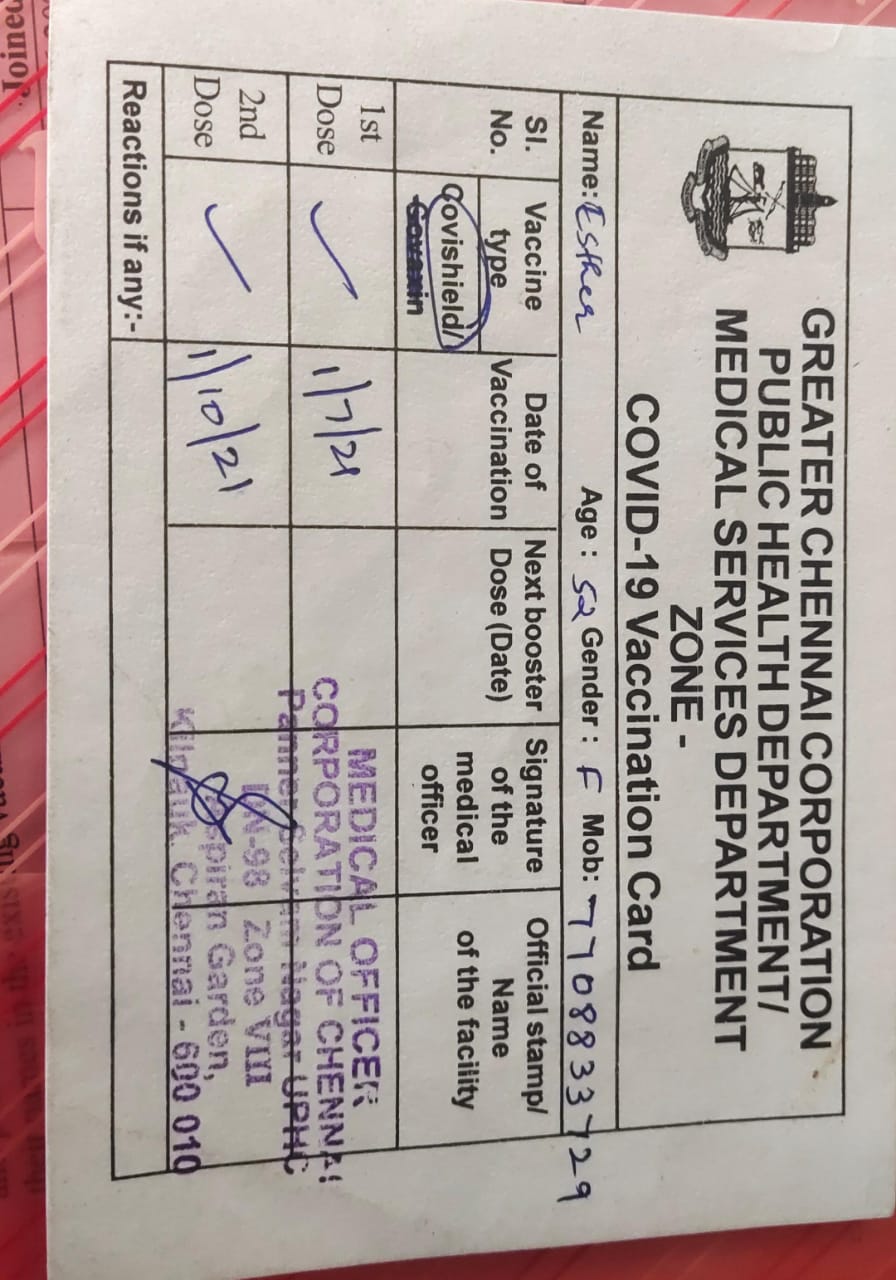 GREATER CHENNAI CORPORATION
PUBLIC HEALTH DEPARTMENT/
MEDICAL SERVICES DEPARTMENT
ZONE -
COVID-19 Vaccination Card
Name: Esther Age : 52 Gender : F Mob: 7708833729
Sl. No.
Vaccine type
Date of Vaccination
Next booster Dose (Date)
Signature of the medical officer
Official stamp/ Name of the facility
Covishield/
Covaxin
1st Dose ✓ 1/7/21
2nd Dose ✓ 1/10/21
MEDICAL OFFICER
CORPORATION OF CHENNAI
Panner Selvam Nagar UPHC
DN-98 Zone VIII
Garden,
Kilpauk, Chennai - 600 010
Reactions if any:-
Joined